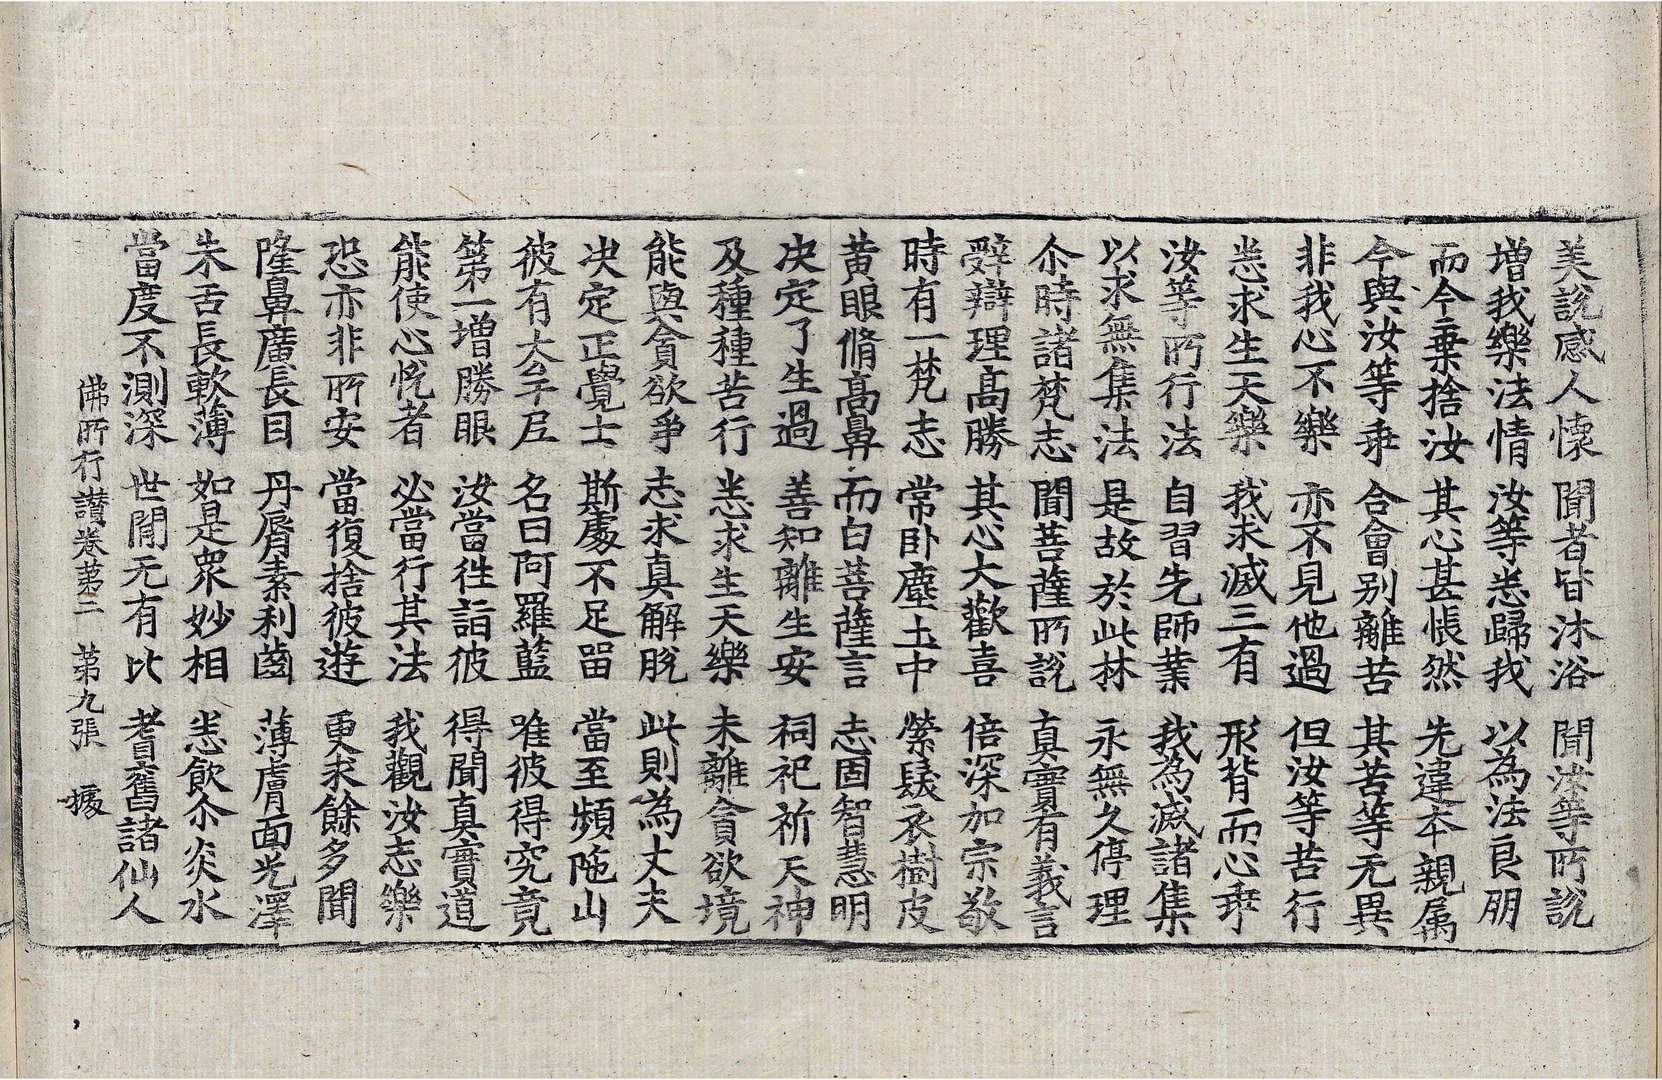 美說感人懷　聞者皆沐浴　聞汝等所說
增我樂法情　汝等悉歸我　以為法良朋
而今棄捨汝　其心甚悵然　先違本親属
今與汝等乖　合會別離苦　其苦等无異
非我心不樂　亦不見他過　但汝等苦行
悉求生天樂　我求滅三有　形背而心乖
汝等所行法　自習先師業　我為滅諸集
以求無集法　是故於此林　永無久停理
尒時諸梵志　聞菩薩所說　真實有義言
辭辯理高勝　其心大歡喜　倍深加宗敬
時有一梵志　常卧塵土中　縈髮衣樹皮
黃眼脩高鼻　而白菩薩言　志固智慧明
决定了生過　善知離生安　祠祀祈天神
及種種苦行　悉求生天樂　未離貪欲境
能與貪欲爭　志求真解脫　此則為丈夫
决定正覺士　斯處不足留　當至頻陁山
彼有大牟尼　名曰阿羅藍　唯彼得究竟
第一增勝眼　汝當往詣彼　得聞真實道
能使心恱者　必當行其法　我觀汝志樂
恐亦非所安　當復捨彼遊　更求餘多聞
隆鼻廣長目　丹脣素利齒　薄膚面光澤
朱舌長軟薄　如是衆妙相　悉飲尒炎水
當度不測深　世閒无有比　耆舊諸仙人
佛所行讃卷第二　第九張　㩀